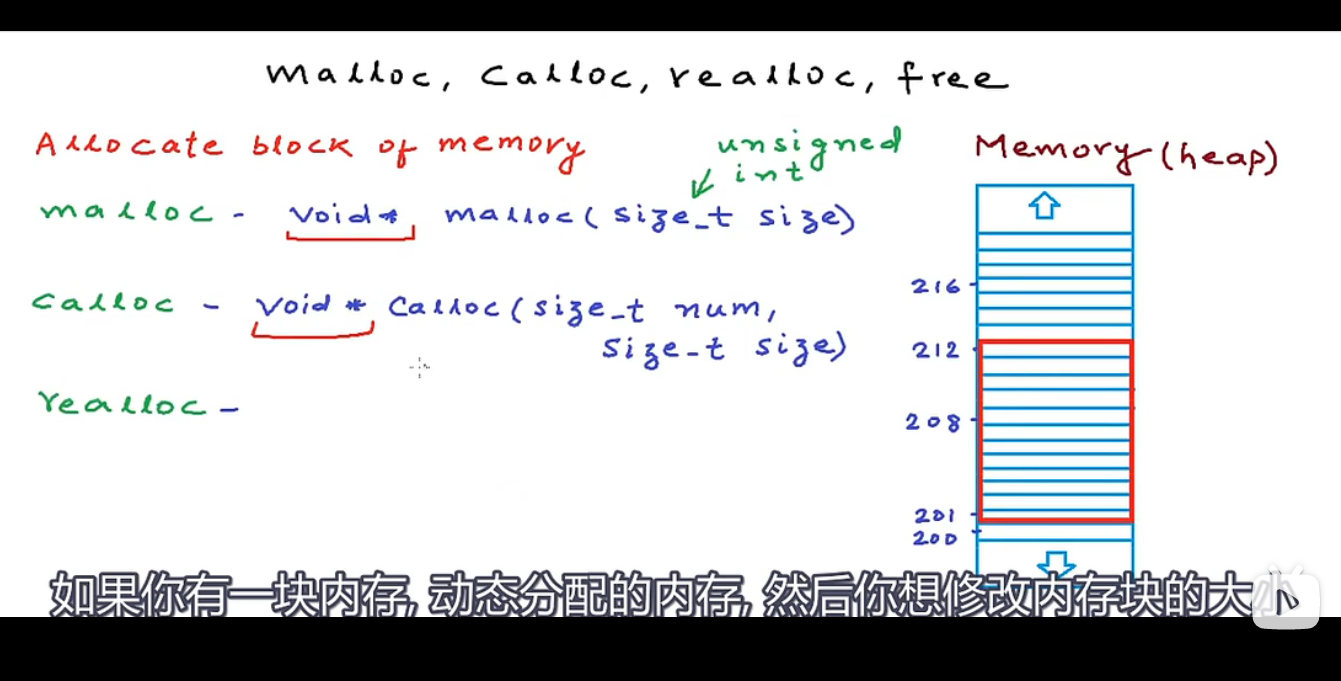 malloc, calloc, realloc, free
Allocate block of memory
unsigned
int
malloc - void* malloc(size_t size)
calloc - void* calloc(size_t num,
size_t size)
realloc -
Memory(heap)
216
212
208
201
200
如果你有一块内存, 动态分配的内存, 然后你想修改内存块的大小